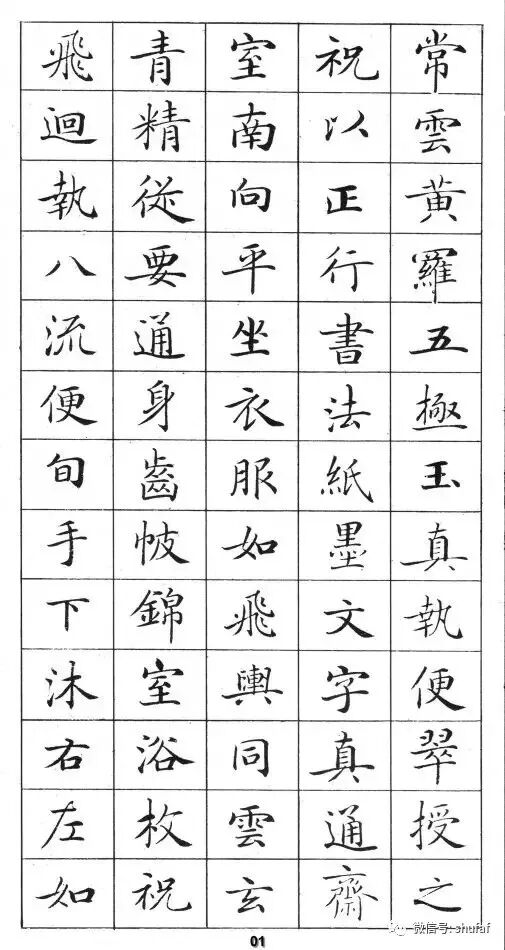 常雲黃羅五極玉真執便翠授之
祝以正行書法紙墨文字真通齋
室南向平坐衣服如飛輿同雲玄
青精從要通身齒帔錦室浴枚祝
飛迴執八流便旬手下沐右左如
01
微信号: shufaf